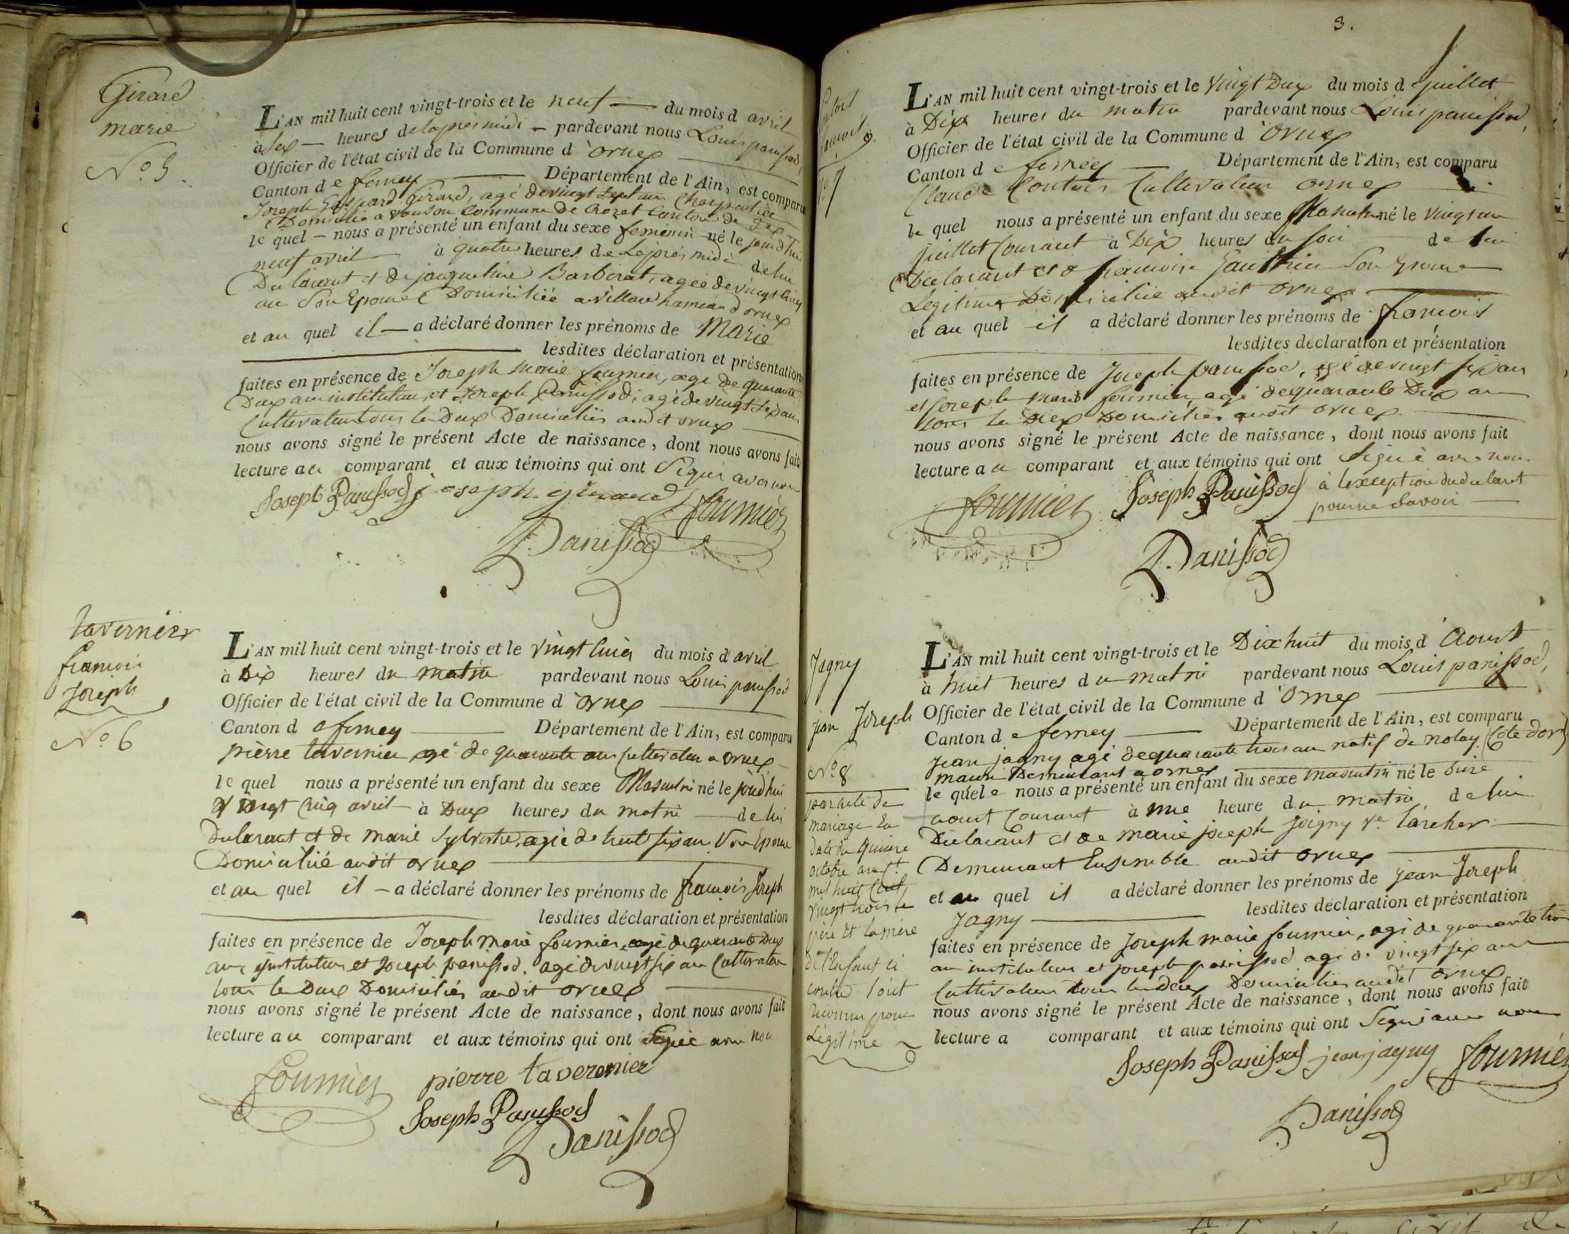 Girard
marie
N.º 5.
L'AN mil huit cent vingt-trois et le neuf du mois d avril
à six heures de laprès midi pardevant nous Louis panissod,
Officier de l'état civil de la Commune d' ornex
Canton d e ferney Département de l'Ain, est comparu
Joseph Gaspard Girard, agé de vingt sept ans Charpentier
Domicilié a Commune de Crozet Canton de Gex
le quel nous a présenté un enfant du sexe feminin né le jourd'hui
neuf avril à quatre heures de Laprès midi de lui
Déclarant et de jacqueline Barberat, agée de vingt cinq
ans Son Epouse Domiciliée a villard d'ornex
et au quel il a déclaré donner les prénoms de Marie
lesdites déclaration et présentation
faites en présence de Joseph Marie fournier, agé de quarante
Deux ans instituteur, et Joseph Panissod, agé de vingt six ans
Cultivateur tous les Deux Domiciliés audit ornex
nous avons signé le présent Acte de naissance, dont nous avons fait
lecture au comparant et aux témoins qui ont Signé avec nous
Joseph Panissod joseph girard fournier
Panissod
tavernier
francois
Joseph
N.º 6
L'AN mil huit cent vingt-trois et le vingt cinq du mois d avril
à Dix heures du matin pardevant nous Louis panissod
Officier de l'état civil de la Commune d' ornex
Canton d e ferney Département de l'Ain, est comparu
pierre tavernier agé de quarante ans Cultivateur a ornex
le quel nous a présenté un enfant du sexe Masculin né le jourd'hui
vingt cinq avril à Deux heures du matin de lui
Déclarant et de marie Sylvestre, agée de trente six ans Son Epouse
Domiciliée audit ornex
et au quel il a déclaré donner les prénoms de francois Joseph
lesdites déclaration et présentation
faites en présence de Joseph marie fournier, agé de quarante Deux
ans instituteur et Joseph panissod. agé de vingt six ans Cultivateur
tous les Deux Domiciliés audit ornex
nous avons signé le présent Acte de naissance, dont nous avons fait
lecture au comparant et aux témoins qui ont Signé avec nous
fournier pierre taverenier
Joseph Panissod
Panissod
3.
francois
7
L'AN mil huit cent vingt-trois et le vingt Deux du mois d juillet
à Dix heures du matin pardevant nous Louis panissod,
Officier de l'état civil de la Commune d' ornex
Canton d e ferney Département de l'Ain, est comparu
Claude Cultivateur ornex
le quel nous a présenté un enfant du sexe Masculin né le vingt un
juillet Courant à Dix heures du soir de lui
Déclarant et de francoise Gauthier Son Epouse
Légitime Domiciliée audit ornex
et au quel il a déclaré donner les prénoms de francois
lesdites déclaration et présentation
faites en présence de Joseph panissod, agé de vingt six ans
et Joseph marie fournier agé de quarante Deux ans
tous les Deux Domiciliés audit ornex
nous avons signé le présent Acte de naissance, dont nous avons fait
lecture au comparant et aux témoins qui ont Signé avec nous
fournier Joseph Panissod à lexception du déclarant
pour ne Savoir
Panissod
Jagny
jean Joseph
N.º 8
par acte de
mariage en
date du quinze
octobre
mil huit Cent
vingt trois le
père et la mère
De l'Enfant ci
contre l'ont
reconnu pour
Légitime
L'AN mil huit cent vingt-trois et le Dix huit du mois d' Aoust
à huit heures du matin pardevant nous Louis panissod,
Officier de l'état civil de la Commune d' ornex
Canton d e ferney Département de l'Ain, est comparu
jean jagny agé de quarante trois ans natif de nolay (Cote d'or)
Demeurant a ornex
le quel nous a présenté un enfant du sexe masculin né le
aoust Courant à une heure du matin, de lui
Déclarant et de marie joseph Ve Larcher
Demeurant Ensemble audit ornex
et au quel il a déclaré donner les prénoms de jean Joseph
Jagny lesdites déclaration et présentation
faites en présence de Joseph marie fournier, agé de quarante trois
ans instituteur et joseph panissod agé de vingt six ans
Cultivateur tous les deux Domiciliés audit ornex
nous avons signé le présent Acte de naissance, dont nous avons fait
lecture a comparant et aux témoins qui ont Signé avec nous
Joseph Panissod jean jagny fournier
Panissod